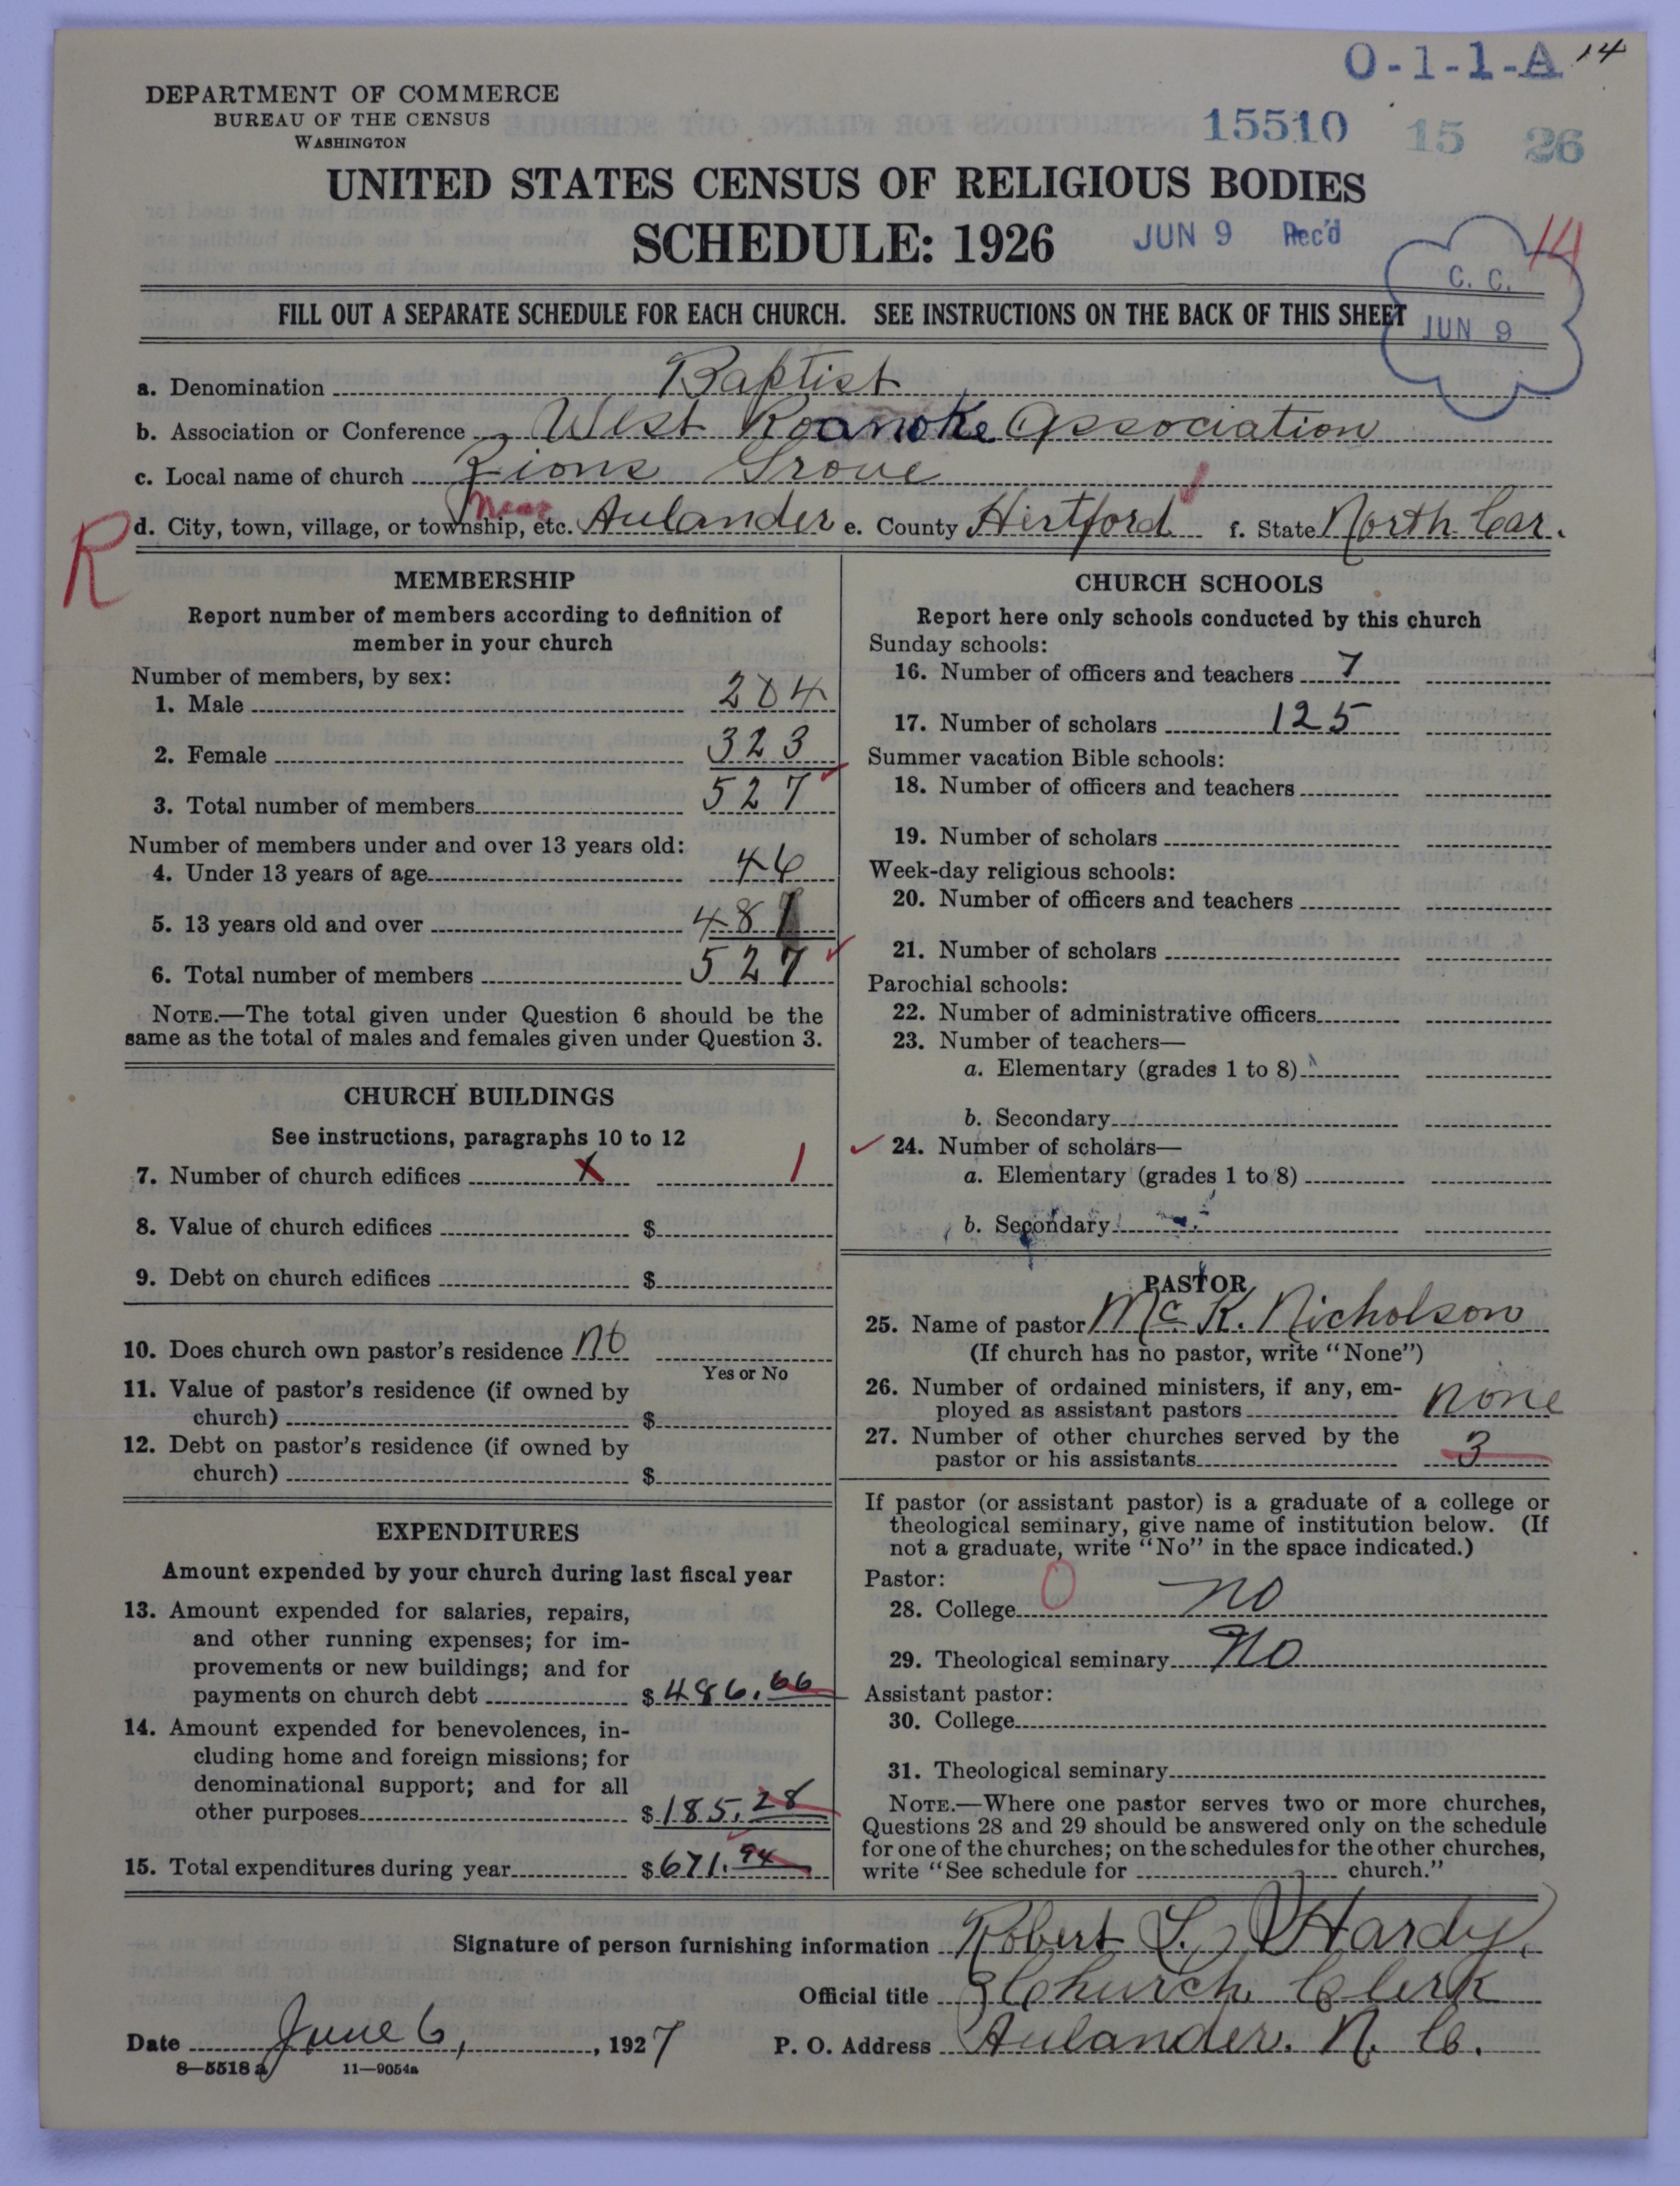 O-1-1-A 14
DEPARTMENT OF COMMERCE
BUREAU OF THE CENSUS
WASHINGTON
15510 15 26
UNITED STATES CENSUS OF RELIGIOUS BODIES
SCHEDULE: 1926
JUN 9 Rec'd
14
C. C.
JUN 9
FILL OUT A SEPARATE SCHEDULE FOR EACH CHURCH. SEE INSTRUCTIONS ON THE BACK OF THIS SHEET
a. Denomination Baptist
b. Association or Conference West Roanoke Association
c. Local name of church Zions Grove
R d. City, town, village, or township, etc. Near Aulander e. County Hertford f. State North Car.
MEMBERSHIP
Report number of members according to definition of
member in your church
Number of members, by sex:
1. Male 204
2. Female 323
3. Total number of members 527
Number of members under and over 13 years old:
4. Under 13 years of age 46
5. 13 years old and over 481
6. Total number of members 527
NOTE.—The total given under Question 6 should be the
same as the total of males and females given under Question 3.
CHURCH BUILDINGS
See instructions, paragraphs 10 to 12
7. Number of church edifices X 1
8. Value of church edifices $
9. Debt on church edifices $
10. Does church own pastor's residence no
Yes or No
11. Value of pastor's residence (if owned by
church) $
12. Debt on pastor's residence (if owned by
church) $
EXPENDITURES
Amount expended by your church during last fiscal year
13. Amount expended for salaries, repairs,
and other running expenses; for im-
provements or new buildings; and for
payments on church debt $ 486.66
14. Amount expended for benevolences, in-
cluding home and foreign missions; for
denominational support; and for all
other purposes $ 185.28
15. Total expenditures during year $ 671.94
CHURCH SCHOOLS
Report here only schools conducted by this church
Sunday schools:
16. Number of officers and teachers 7
17. Number of scholars 125
Summer vacation Bible schools:
18. Number of officers and teachers
19. Number of scholars
Week-day religious schools:
20. Number of officers and teachers
21. Number of scholars
Parochial schools:
22. Number of administrative officers
23. Number of teachers—
a. Elementary (grades 1 to 8)
b. Secondary
24. Number of scholars—
a. Elementary (grades 1 to 8)
b. Secondary
PASTOR
25. Name of pastor Mc. K. Nicholson
(If church has no pastor, write "None")
26. Number of ordained ministers, if any, em-
ployed as assistant pastors none
27. Number of other churches served by the
pastor or his assistants 3
If pastor (or assistant pastor) is a graduate of a college or
theological seminary, give name of institution below. (If
not a graduate, write "No" in the space indicated.)
Pastor: 0
28. College no
29. Theological seminary No
Assistant pastor:
30. College
31. Theological seminary
NOTE.—Where one pastor serves two or more churches,
Questions 28 and 29 should be answered only on the schedule
for one of the churches; on the schedules for the other churches,
write "See schedule for church."
Signature of person furnishing information Robert L. Hardy.
Official title Church Clerk
Date June 6, 1927 P. O. Address Aulander. N. C.
8—5518 a 11—9054a